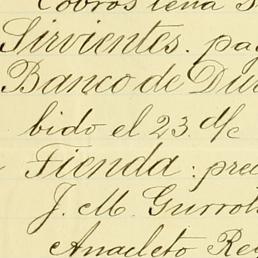 Cobros leña
Sirvientes. pag
Banco de Du
bido el 23. d/c
Tienda: prec
J. M. Gurrol
Anacleto Re